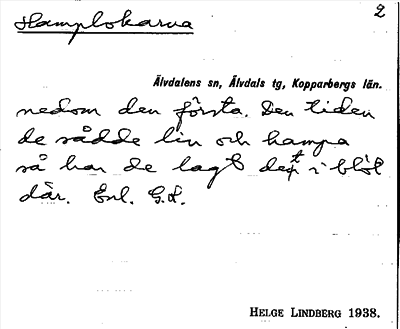 Hamplokarna 2
Älvdalens sn, Älvdals tg, Kopparbergs län.
nedom den första. Den tiden
de sådde lin och hampa
så har de lagt det i blöt
där. Enl. G.L.
HELGE LINDBERG 1938.